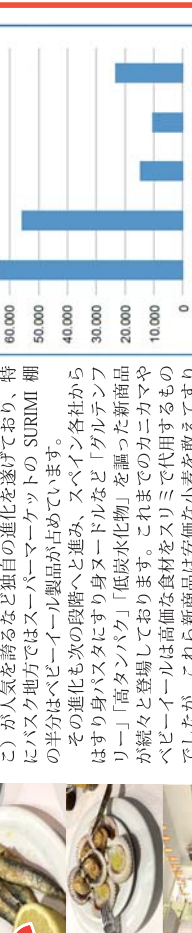 こ）が人気を誇るなど独自の進化を遂げており、特
にバスク地方ではスーパーマーケットの SURIMI 棚
の半分はベビーイール製品が占めています。
その進化も次の段階へと進み、スペイン各社から
はすり身パスタにすり身ヌードルなど「グルテンフ
リー」「高タンパク」「低炭水化物」を謳った新商品
が続々と登場しております。これまでのカニカマや
ベビーイールは高価な食材をスリミで代用するもの
でしたが、これら新商品は安価な小麦を敢えてすり
60.000
50.000
40.000
30.000
20.000
10.000
0